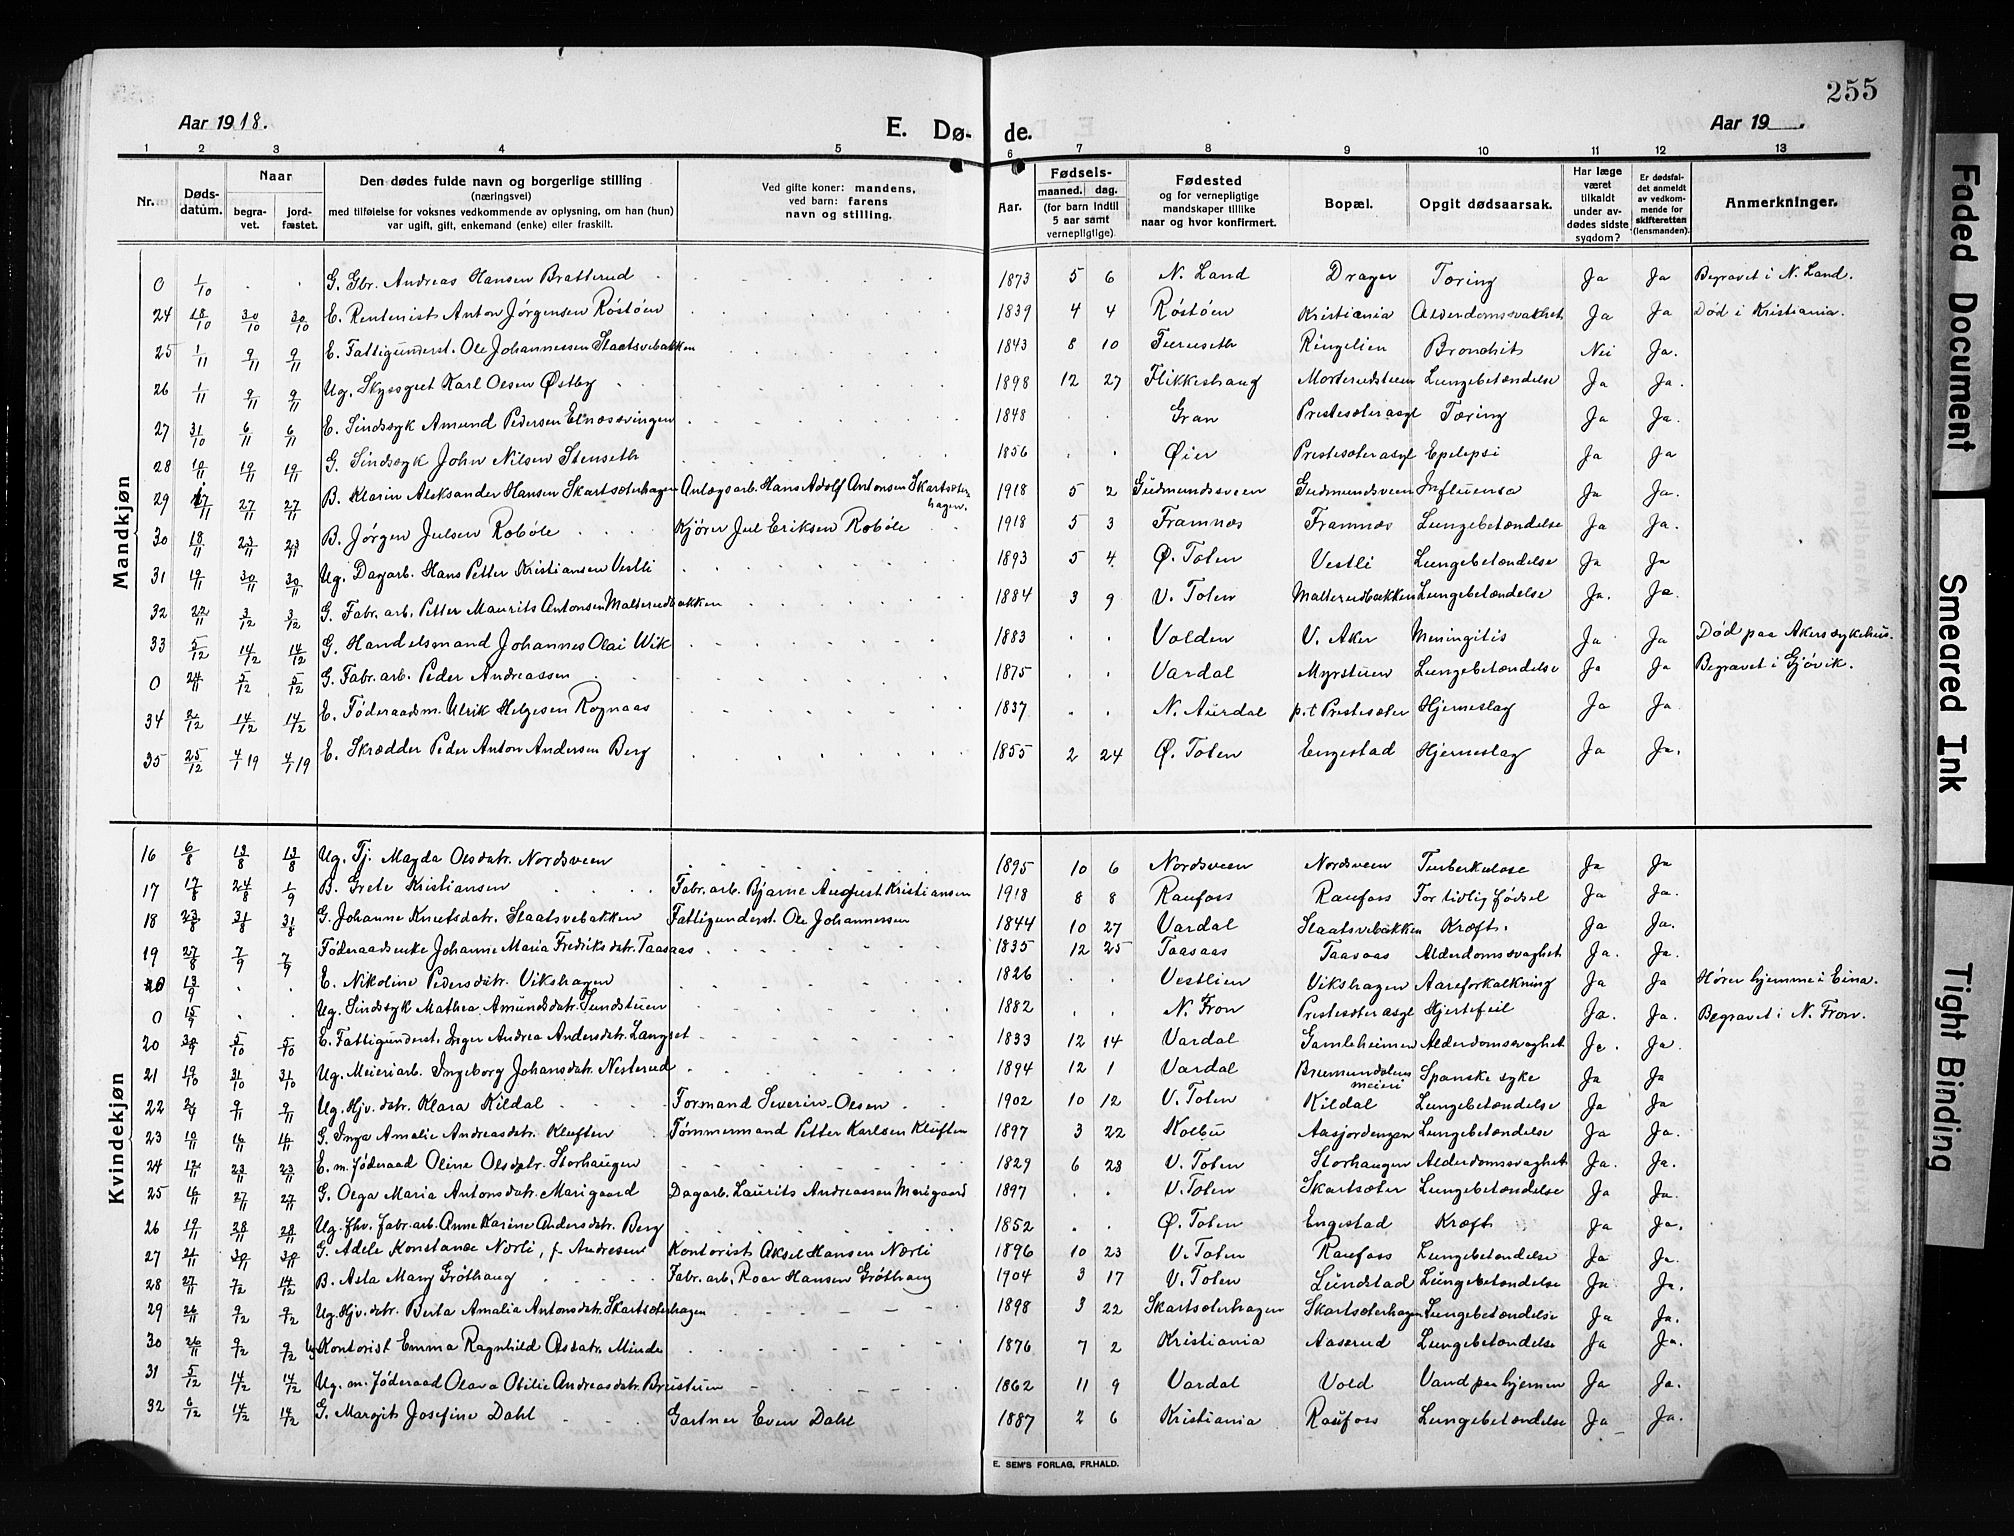 255
Aar 1918.
E. Dø- de.
Aar 19
1 2 3 4 5 6 7 8 9 10 11 12 13
Nr. Dødsdatum. Naar begravet. jordfæstet. Den dødes fulde navn og borgerlige stilling (næringsvei) med tilføielse for voksnes vedkommende av oplysning, om han (hun) var ugift, gift, enkemand (enke) eller fraskilt. Ved gifte koner: mandens, ved barn: farens navn og stilling. Aar. Fødsels- maaned. dag. (for barn indtil 5 aar samt vernepligtige). Fødested og for vernepligtige mandskaper tillike naar og hvor konfirmert. Bopæl. Opgit dødsaarsak. Har læge været tilkaldt under avdødes sidste sygdom? Er dødsfaldet anmeldt av vedkommende for skifteretten (lensmanden). Anmerkninger.
Mandkjøn
0 1/10 G. Gbr. Andreas Hansen Bratterud 1873 5 6 N. Land Drager Tæring Ja Ja Begravet i N. Land.
24 18/10 30/10 30/10 E. Rentenist Anton Jørgensen Røstøen 1839 4 4 Røstøen Kristiania Alderdomssvakhet Ja Ja Død i Kristiania.
25 1/11 9/11 9/11 E. Fattigunderst. Ole Johannessen Slaatsvebakken 1843 8 10 Turuseth Ringelien Bronchit Nei Ja.
26 1/11 9/11 9/11 Ug. Skysgut Karl Olsen Østby 1898 12 27 Flikkeshaug Morterudsteen Lungebetændelse Ja Ja.
27 31/10 6/11 6/11 E. Sindssyk Amund Pedersen Elnæssvingen 1848 Gran Prestesæter asyl Tæring Ja Ja.
28 10/11 19/11 19/11 G. Sindssyk John Nilsen Stenseth 1856 Øier Prestesæter asyl Epelepsi Ja Ja
29 17/11 27/11 27/11 B. Klarin Aleksander Hansen Skartsæterhagen Anlægsarb. Hans Adolf Antonsen Skartsæterhagen. 1918 5 2 Gudmundsveen Gudmundsveen Influensa Ja Ja.
30 18/11 23/11 23/11 B. Jørgen Julsen Robøle Kjører Jul Eriksen Robøle 1918 5 3 Framnæs Framnæs Lungebetændelse Ja Ja.
31 19/11 30/11 30/11 Ug. Dagarb. Hans Petter Kristiansen Vestli 1893 5 4 Ø. Toten Vestli Lungebetændelse Ja Ja
32 22/11 3/12 3/12 G. Fabr. arb. Petter Maurits Antonsen Malterudbakken 1884 3 9 V. Toten Malterudbakken Lungebetændelse Ja. Ja.
33 5/12 14/12 14/12 G. Handelsmand Johannes Olai Wik 1883 Volden V. Aker Meningitis Ja Ja Død paa Akers sykehus.
0 24/11 5/12 5/12 G. Fabr. arb. Peder Andreassen 1875 Vardal Myrstuen Lungebetændelse Ja Ja Begravet i Gjøvik.
34 2/12 14/12 14/12 E. Føderaadsm. Ulrik Helgesen Rognaas 1837 N. Aurdal p.t Prestesæter Hjerneslag Ja Ja.
35 25/12 4/1 19 4/1 19 E. Skrædder Peder Anton Andersen Berg 1855 2 24 Ø. Toten Engestad Hjerneslag Ja Ja.
Kvindekjøn
16 6/8 13/8 13/8 Ug. Tj. Magda Olsdatr. Nordsveen 1895 10 6 Nordsveen Nordsveen Tuberkulose Ja Ja
17 17/8 24/8 1/9 B. Grete Kristiansen Fabr. arb. Bjarne August Kristiansen 1918 8 8 Raufoss Raufoss For tidlig fødsel Ja Ja.
18 23/8 31/8 31/8 G. Johanne Knutsdatr. Slaatsvebakken Fattigunderst. Ole Johannessen 1844 10 27 Vardal Slaatsvebakken Kræft. Ja Ja.
19 27/8 7/9 7/9 Føderaadsenke Johanne Maria Fredriksdatr. Taasaas 1835 12 25 Taasaas Taasaas Alderdomssvaghet Ja. Ja.
0 13/9 E. Nikoline Pedersdatr. Vikshagen 1826 Vestlien Vikshagen Aareforkalkning Ja Ja Hører hjemme i Eina.
0 15/9 Ug. Sindssyk Mathea Amundsdatr. Sundstuen 1882 N. Fron Prestesæter asyl Hjertefeil Ja. Ja. Begravet i N. Fron.
20 30/9 5/10 5/10 E. Fattigunderst. Inger Andrea Andersdatr. Langset 1833 12 14 Vardal Gamleheimen Alderdomssvaghet Ja. Ja
21 19/10 31/10 31/10 Ug. Meieriarb. Ingeborg Johansdatr. Nesterud 1894 12 1 Vardal Brumundalens meieri Spanske syke Ja Ja
22 9/11 9/11 Ug. Hjv. datr. Klara Kildal Formand Severin Olsen 1902 10 12 V. Toten Kildal Lungebetændelse Ja Ja
23 10/11 16/11 16/11 G. Inga Amalie Andreasdatr. Kluften Tømmermand Petter Karlsen Kluften 1897 3 22 Kolbu Aasjordengen Lungebetændelse Ja Ja.
24 17/11 23/11 23/11 E. m. føderaad Oline Olsdatr. Storhaugen 1829 6 23 V. Toten Storhaugen Alderdomssvaghet Ja. Ja.
25 16/11 27/11 27/11 G. Olga Maria Antonsdatr. Marigaard Dagarb. Laurits Andreassen Marigaard 1897 V. Toten Skartsæter Lungebetændelse Ja Ja.
26 19/11 28/11 28/11 Ug. fhv. fabr. arb. Anne Karine Andersdatr. Berg 1852 Ø. Toten Engestad Kræft Ja Ja.
27 21/11 30/11 30/11 G. Adele Konstanse Nærli, f. Andresen Kontorist Aksel Hansen Nærli 1896 10 23 V. Toten Raufoss Lungebetændelse Ja Ja.
28 27/11 7/12 14/12 B. Asta Mary Grøthaug Fabr. arb. Roar Hansen Grøthaug 1904 3 17 V. Toten Lundstad Lungebetændelse Ja. Ja.
29 26/11 9/12 9/12 Ug. Hjv. datr. Berta Amalia Antonsdatr. Skartsæterhagen 1898 3 22 Skartsæterhagen Skartsæterhagen Lungebetændelse Ja Ja.
30 26/11 9/12 9/12 Ug Kontorist Emma Ragnhild Olsdatr. Minde 1876 7 2 Kristiania Aaserud Lungebetændelse Ja Ja.
31 5/12 14/12 14/12 Ug. m. føderaad Olava Otilie Andreasdatr. Brustuen 1862 11 9 Vardal Vold Vand paa hjernen Ja Ja.
32 6/12 14/12 14/12 G. Margit Josefine Dahl Gartner Even Dahl 1887 2 6 Kristiania Raufoss Lungebetændelse Ja Ja.
E. SEM'S FORLAG, FR.HALD.
Faded Document
Smeared Ink
Tight Binding